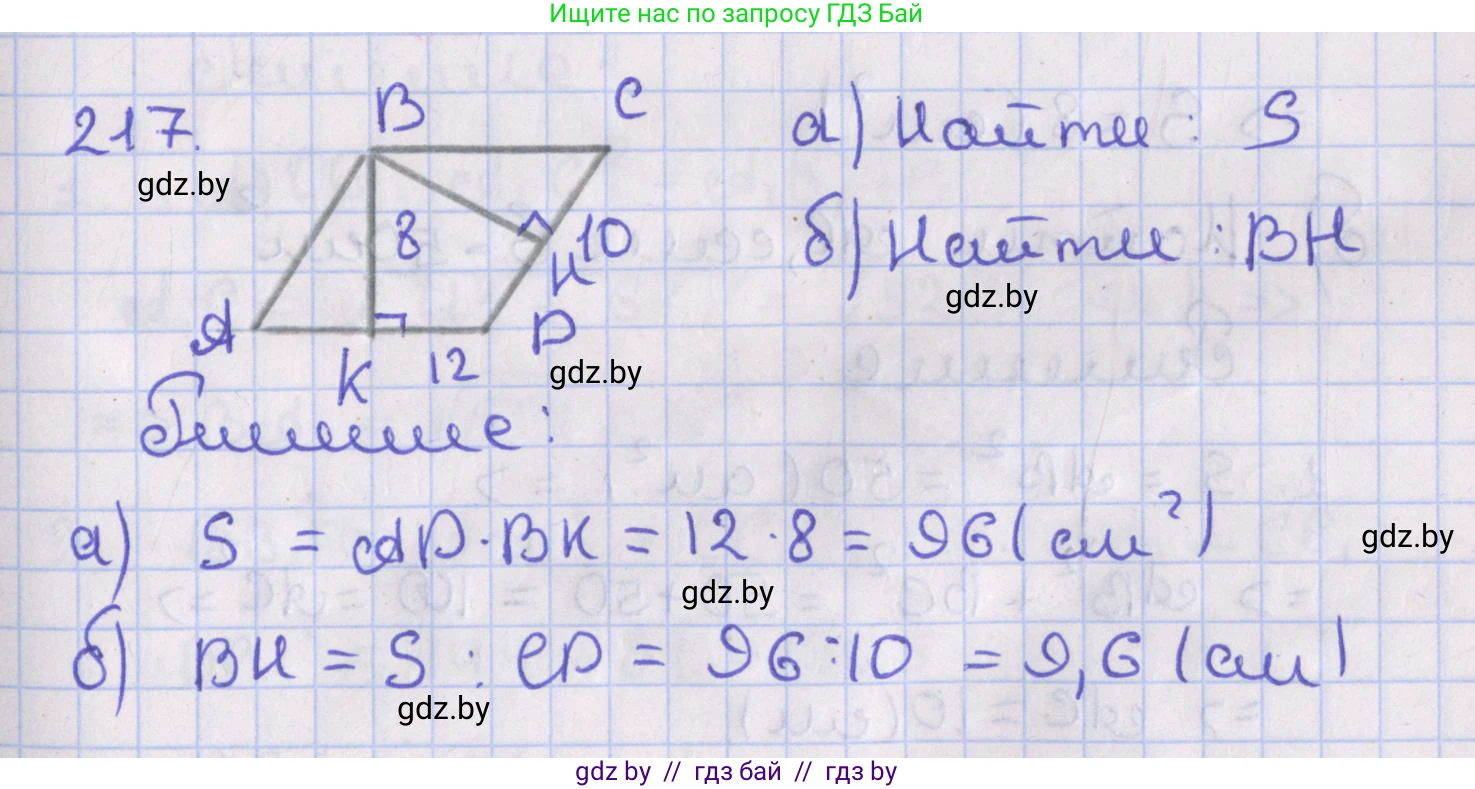 Ищите нас по запросу ГДЗ Бай
217.
gdz.by
B
C
8
10
H
A
K
12
D
gdz.by
а) Найти: S
б) Найти: BH
gdz.by
Решение:
а) S = AD · BK = 12 · 8 = 96 (см²)
gdz.by
gdz.by
б) BH = S : CD = 96 : 10 = 9,6 (см)
gdz.by
gdz by // гдз бай // гдз by